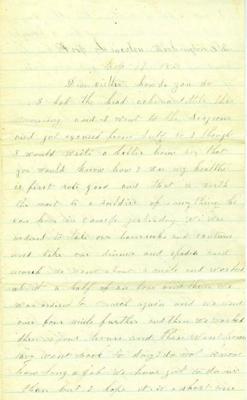 Fort
Sep 17
Dear sister how do you do
I had the head ache a little this
morning and I went to the surgeon
and got excused from duty so I though
I would write a letter home so that
you would know how I was my healthe
is first rate good and that is worth
the most to a soldier of any thing he
can have in camp yesterday we was
ordered to take our haversacks and canteens
and take our dinner and spades and
march we went about a mile and worked
at it a half of an hour and then we
was ordered to march again and we went
one four mile further and then we worked
then is four hours and then went home
they went back to day I do not know
how long a job we have got to do
than but I hope it is a short one